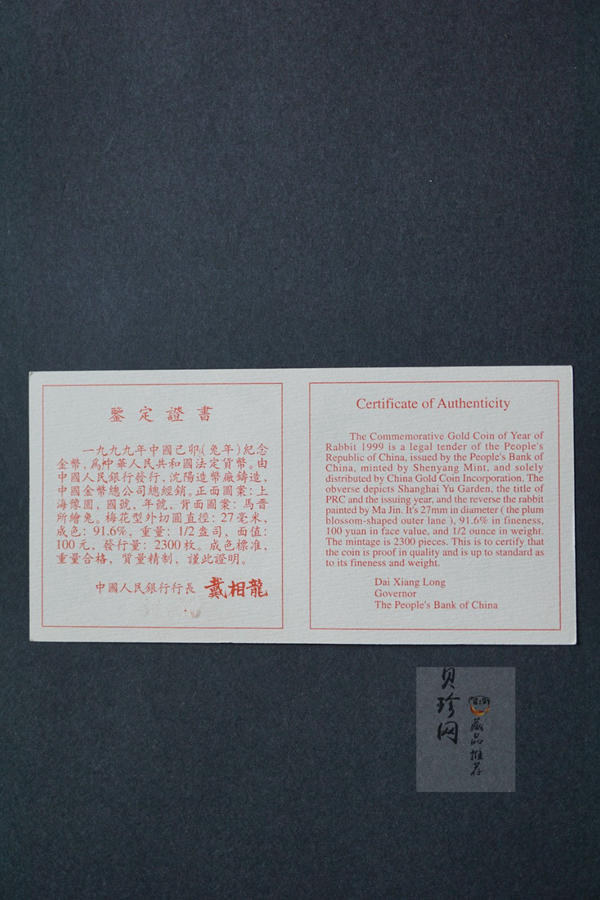 鑒定證書
一九九九年中國己卯(兔年)紀念
金幣，爲中華人民共和國法定貨幣。由
中國人民銀行發行，沈陽造幣廠鑄造，
中國金幣總公司總經銷。正面圖案：上
海豫園，國號，年號，背面圖案：馬晋
所繪兔。梅花型外切圓直徑：27毫米，
成色：91.6%，重量：1/2盎司，面值：
100元，發行量：2300枚。成色標准，
重量合格，質量精制，謹此證明。
中國人民銀行行長 戴相龍
Certificate of Authenticity
The Commemorative Gold Coin of Year of
Rabbit 1999 is a legal tender of the People's
Republic of China, issued by the People's Bank of
China, minted by Shenyang Mint, and solely
distributed by China Gold Coin Incorporation. The
obverse depicts Shanghai Yu Garden, the title of
PRC and the issuing year, and the reverse the rabbit
painted by Ma Jin. It's 27mm in diameter ( the plum
blossom-shaped outer lane ), 91.6% in fineness,
100 yuan in face value, and 1/2 ounce in weight.
The mintage is 2300 pieces. This is to certify that
the coin is proof in quality and is up to standard as
to its fineness and weight.
Dai Xiang Long
Governor
The People's Bank of China
贝珍网
藏品推荐